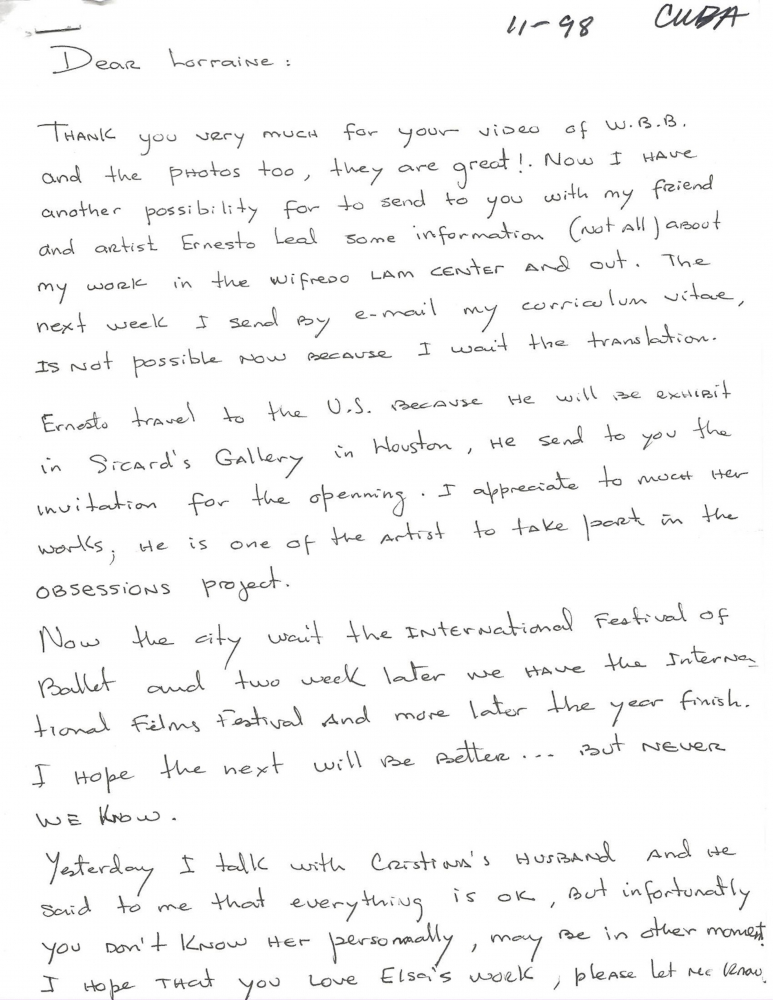 11-98 CUBA
Dear Lorraine:
THANK you very much for your video of W.B.B.
and the photos too, they are great!. Now I HAVE
another possibility for to send to you with my friend
and artist Ernesto Leal some information (not All) about
my work in the Wifredo LAM CENTER AND out. The
next week I send By e-mail my curriculum vitae,
Is Not possible Now BECAUSE I wait the translation.
Ernesto travel to the U.S. BECAUSE He will BE EXHIBIT
in Sicard's Gallery in Houston, He send to you the
invitation for the openning. I appreciate to much Her
works, He is one of the Artist to take part in the
OBSESSIONS project.
Now the city wait the INTERNational Festival of
Ballet and two week later we HAVE the Interna
tional Films Festival And more later the year finish.
I Hope the next will Be Better... But NEVER
WE KNOW.
Yesterday I talk with Cristina's HUSBAND And He
said to me that everything is OK, But infortunatly
you Don't Know Her personnally, may Be in other moment.
I Hope THAT you Love Elsa's work, please let me know.